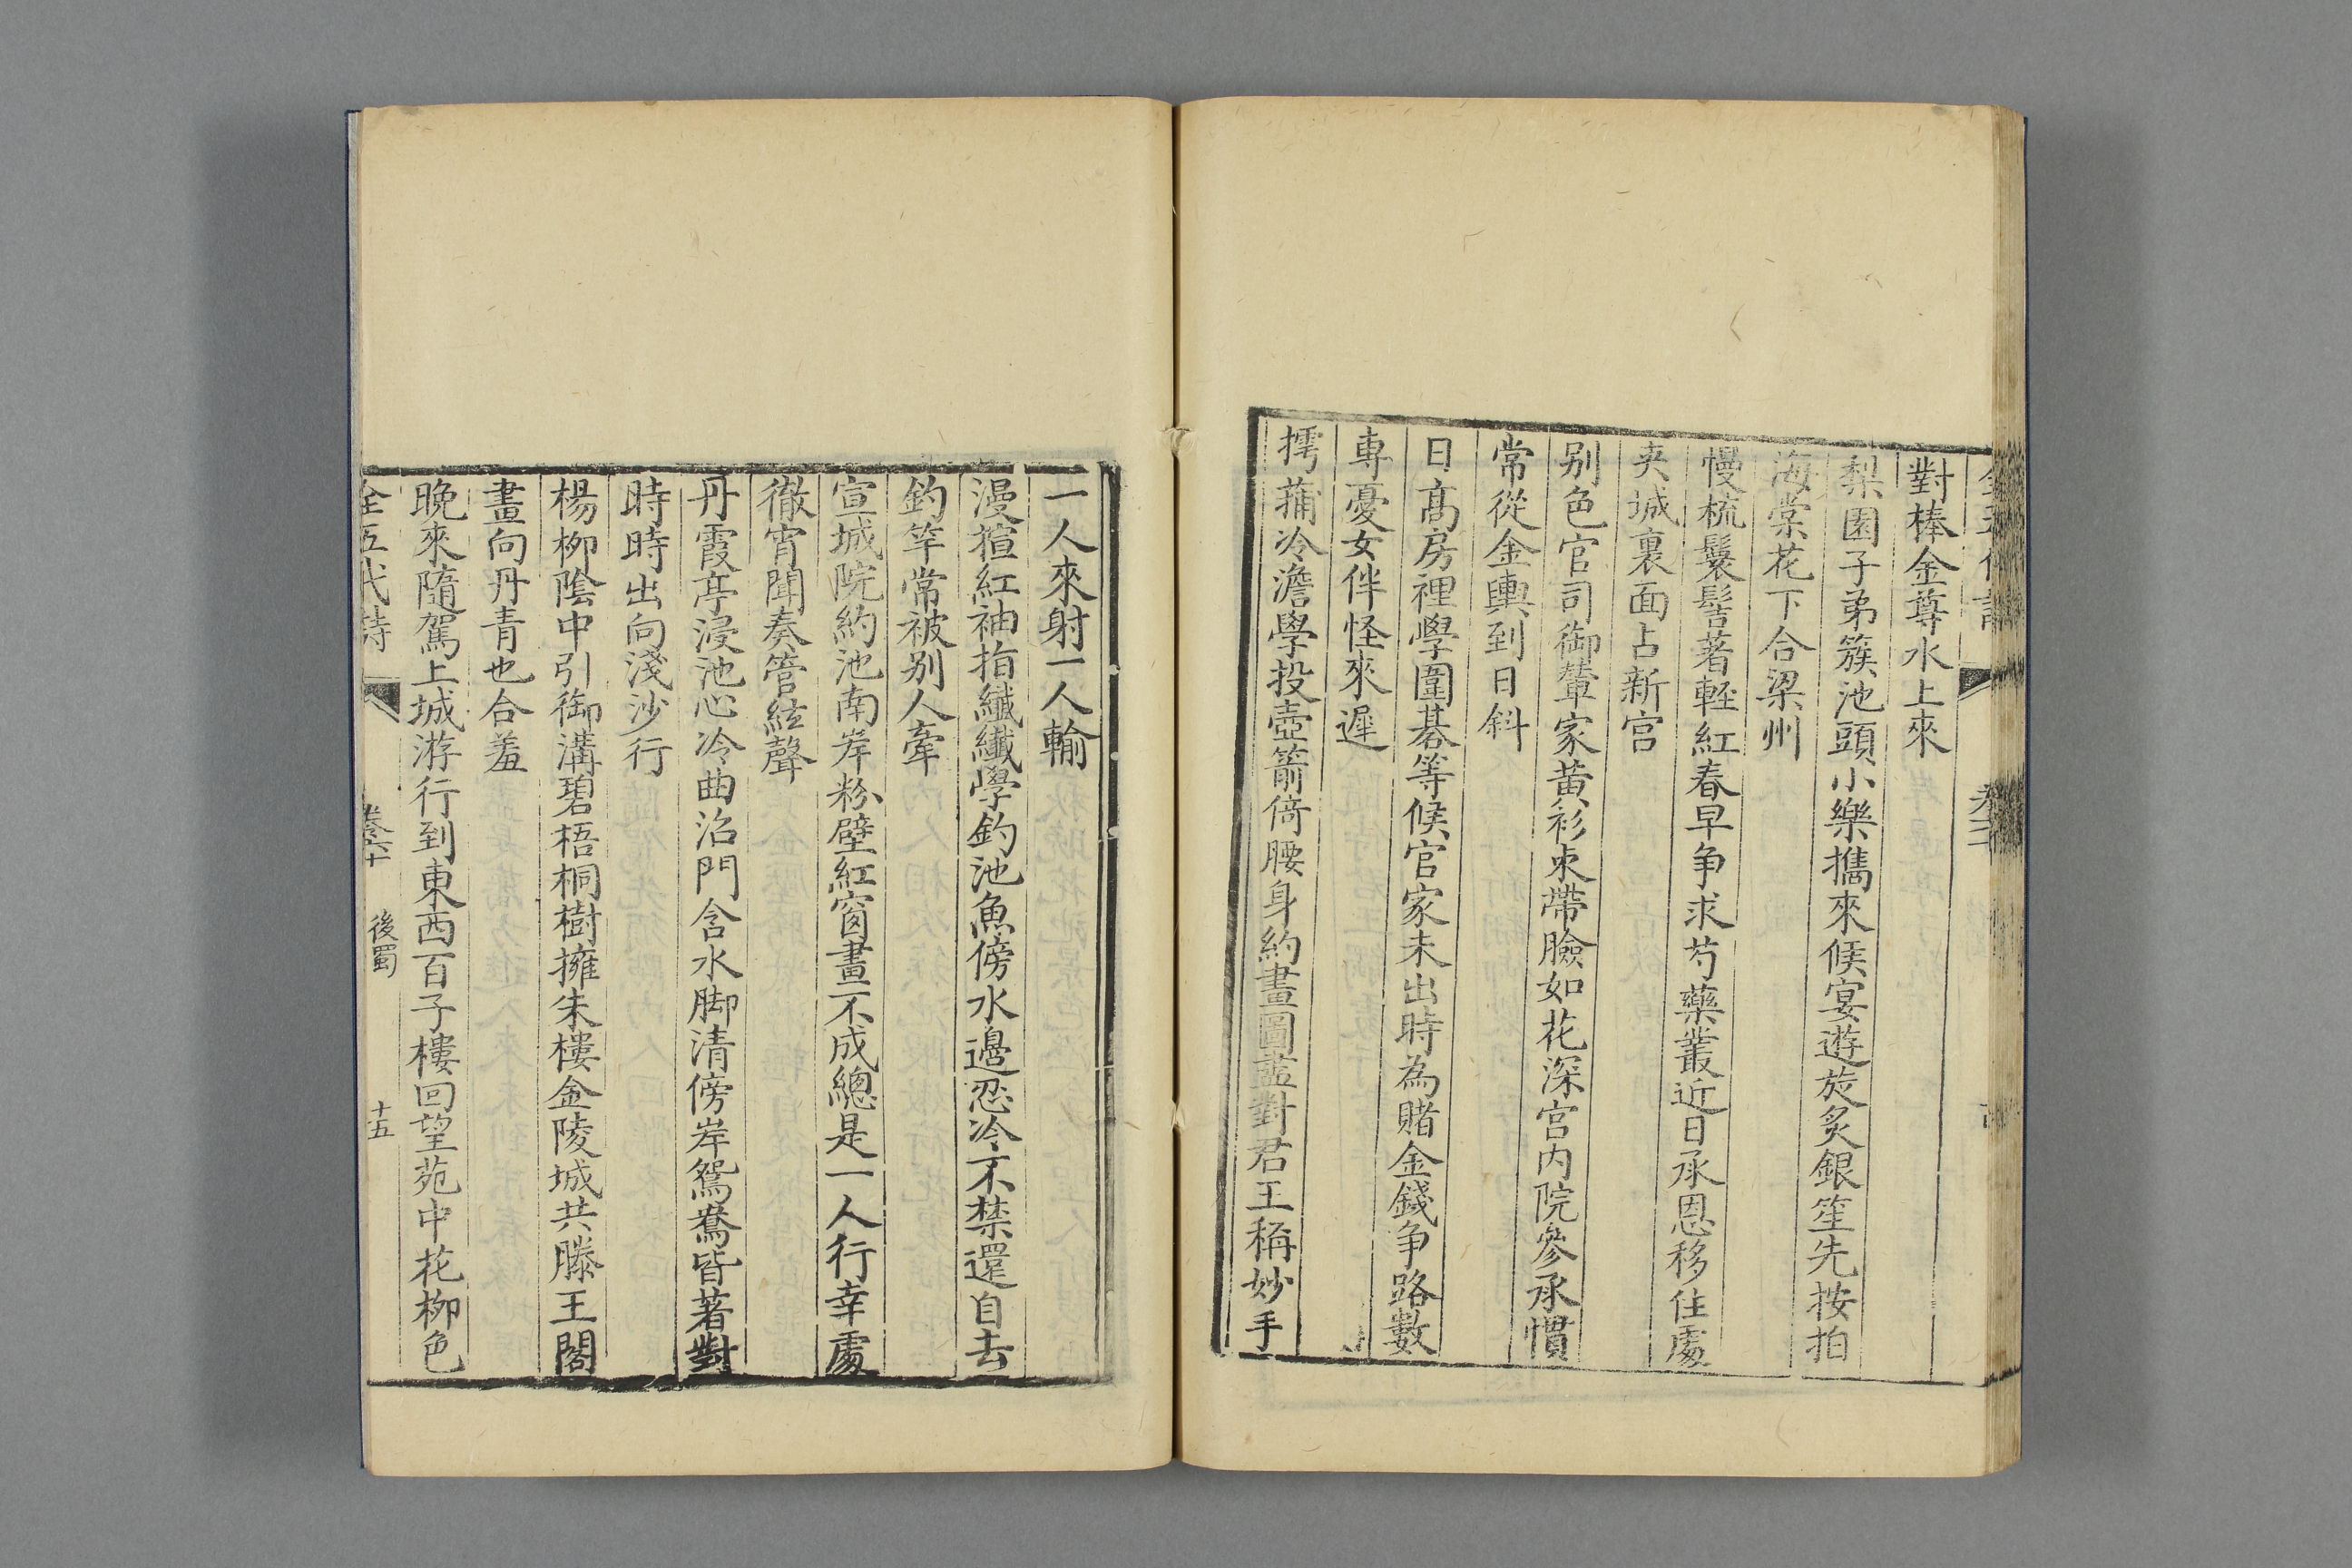 對棒金尊水上來
梨園子弟簇池頭小樂攜來候宴遊旋炙銀笙先按拍
海棠花下合梁州
慢梳鬟髻著輕紅春早争求芍藥叢近日承恩移住處
夾城裏面占新宫
别色官司御輦家黄衫束帶臉如花深宫内院參承慣
常從金輿到日斜
日高房裡學圍碁等候官家未出時為賭金錢争路數
專憂女伴怪來遲
摴蒱冷澹學投壺箭倚腰身約畫圖盡對君王稱妙手
一人來射一人輸
漫揎紅袖指纖纖學釣池魚傍水邊忍冷不禁還自去
釣竿常被别人牽
宣城院約池南岸粉壁紅窗畫不成總是一人行幸處
徹宵聞奏管絃聲
丹霞亭浸池心冷曲沼門含水脚清傍岸鴛鴦皆著對
時時出向淺沙行
楊柳陰中引御溝碧梧桐樹擁朱樓金陵城共滕王閣
畫向丹青也合羞
晚來隨駕上城游行到東西百子樓回望苑中花柳色
全五代詩 卷六十 後蜀 十五